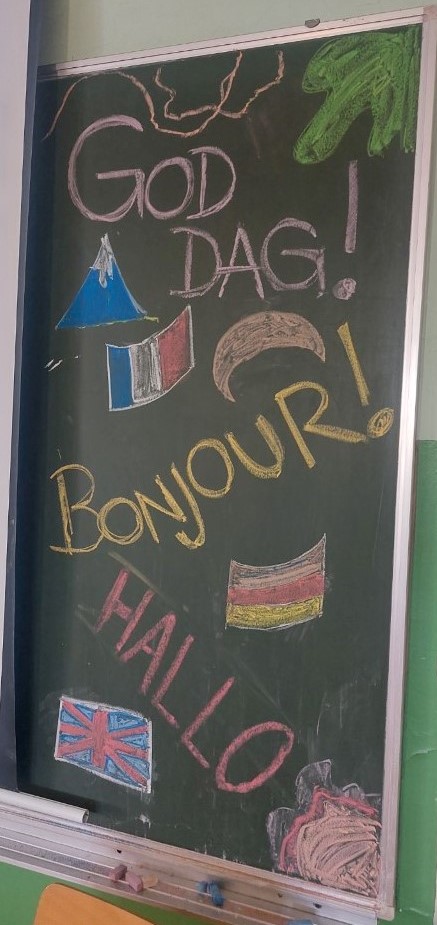 GOD
DAG!
BONJOUR!
HALLO